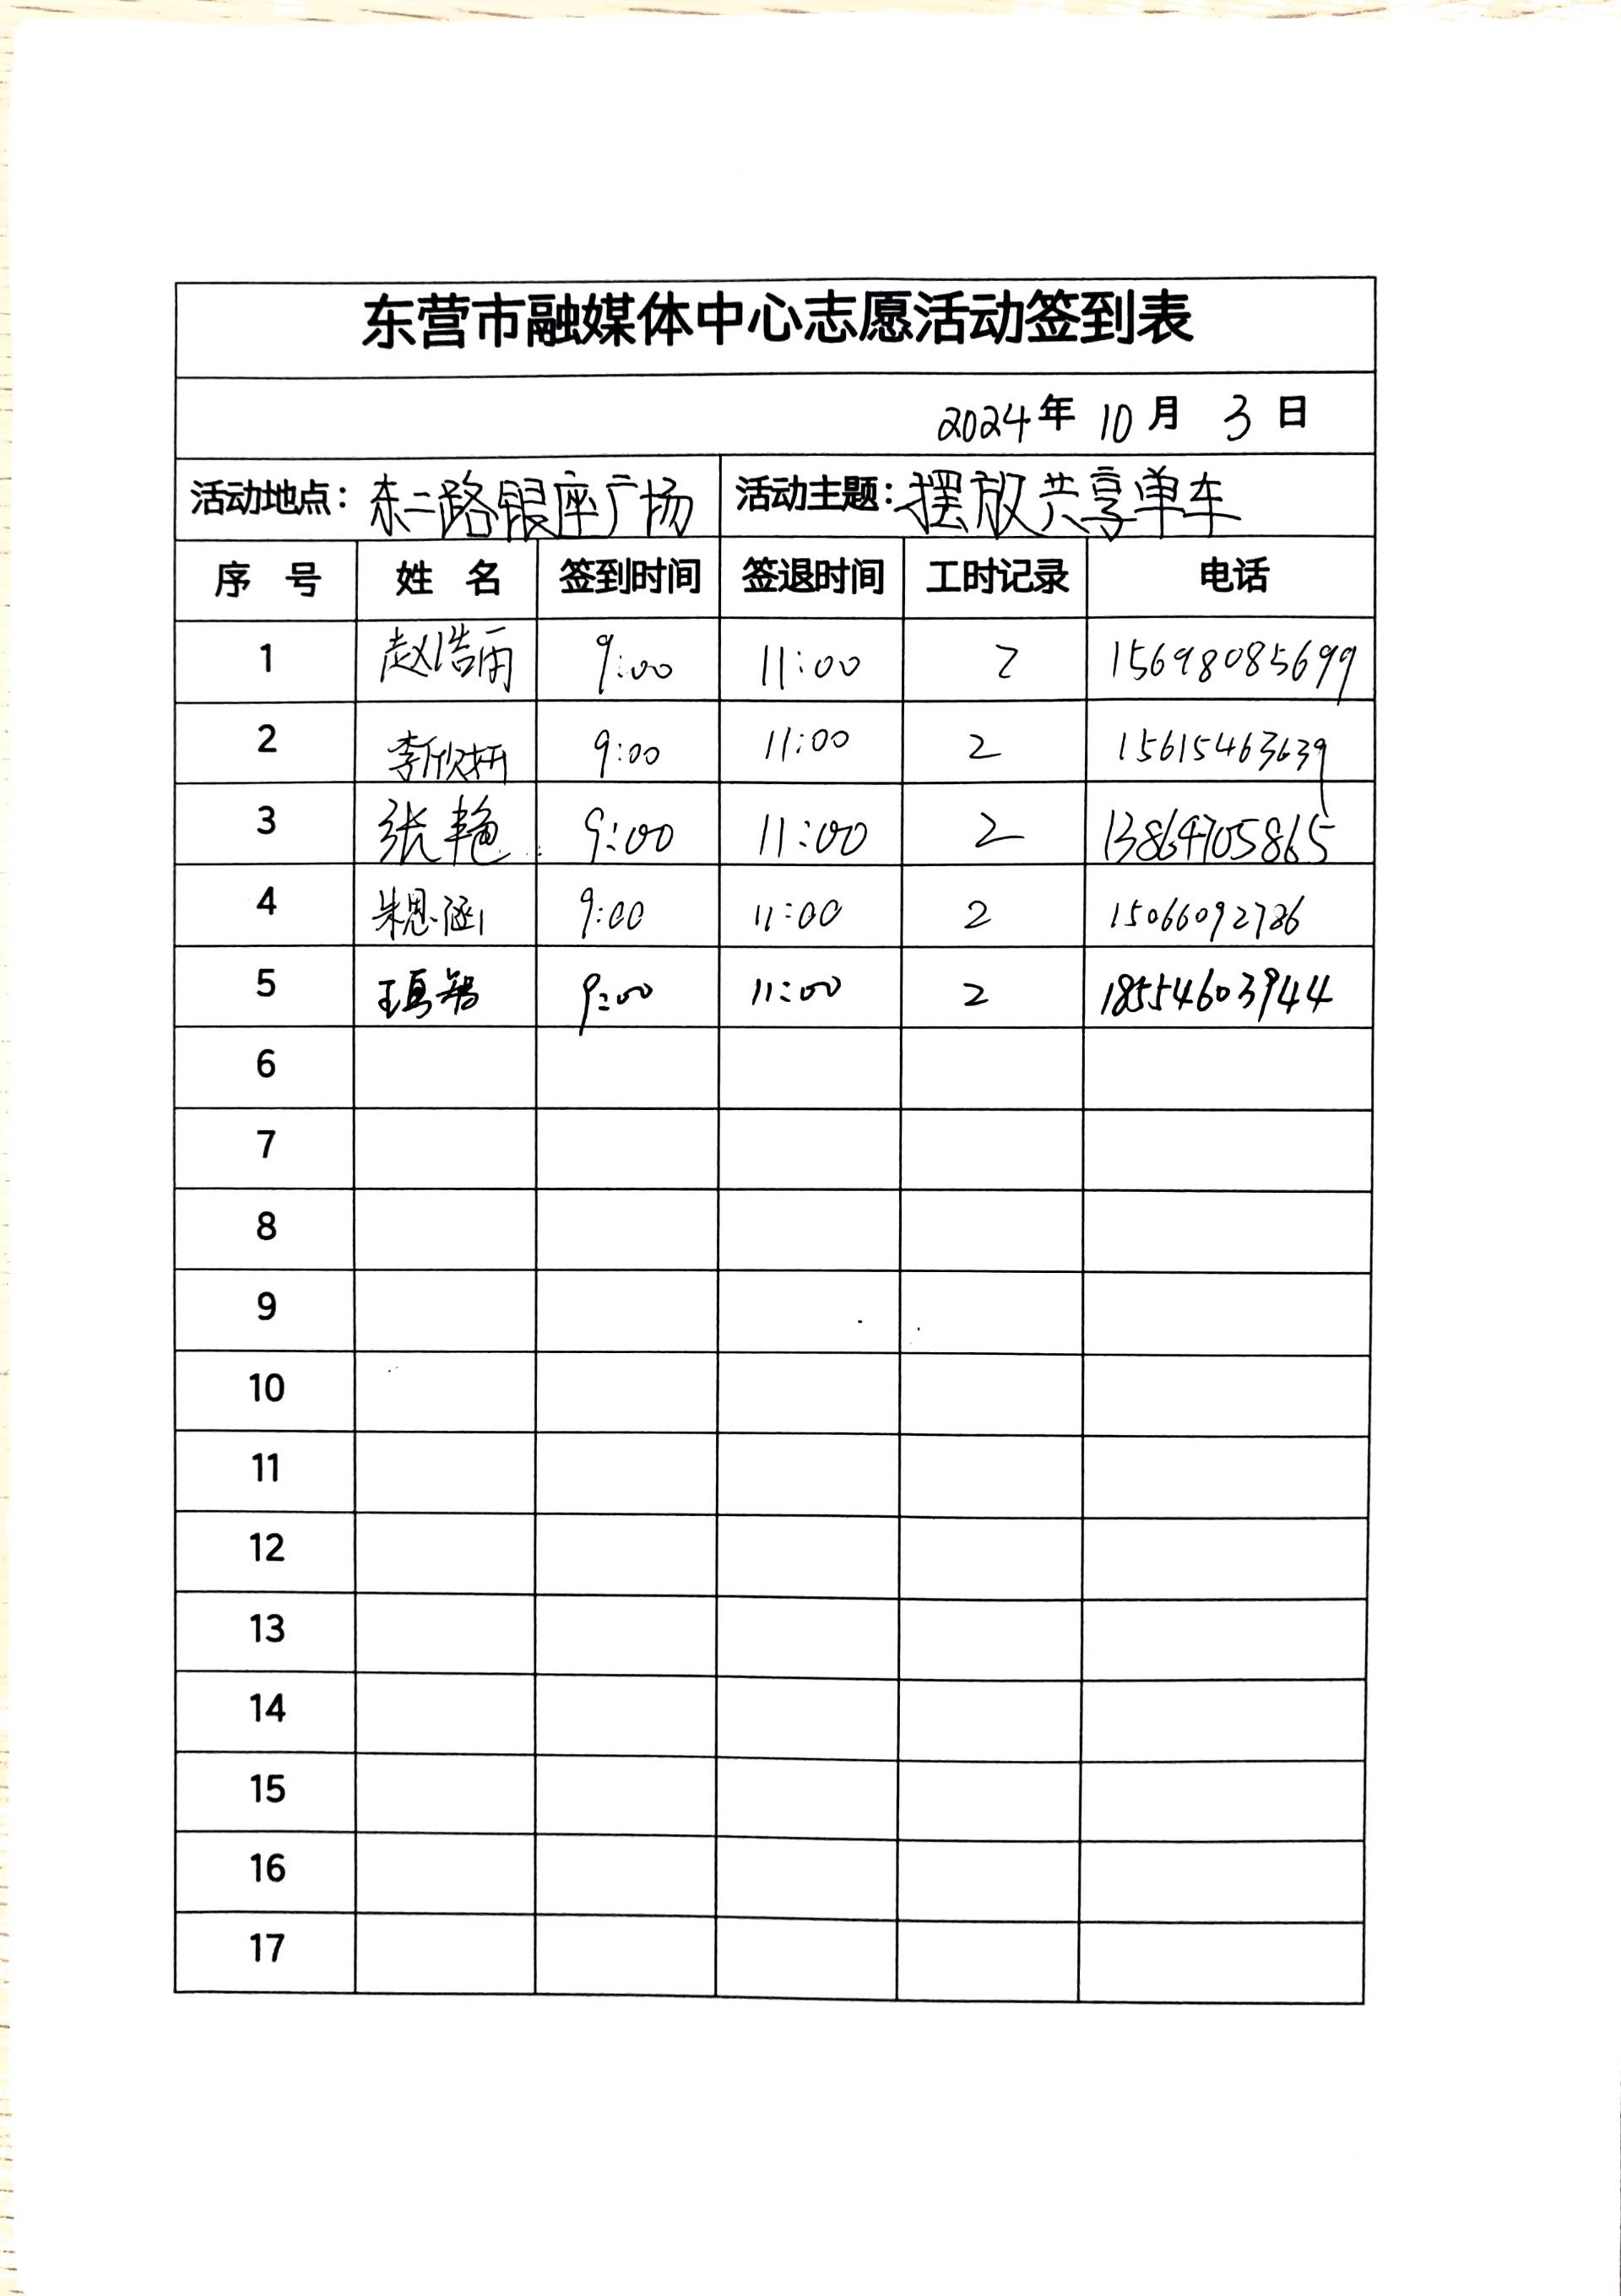 东营市融媒体中心志愿活动签到表
2024年 10月 3日
活动地点：东二路银座广场 活动主题：摆放共享单车
序号 姓名 签到时间 签退时间 工时记录 电话
1 赵浩 9:00 11:00 2 15698085699
2 李欣妍 9:00 11:00 2 15615463639
3 张艳 9:00 11:00 2 13864705865
4 朱思涵 9:00 11:00 2 15066092786
5 王 9:00 11:00 2 18554603944
6
7
8
9
10
11
12
13
14
15
16
17